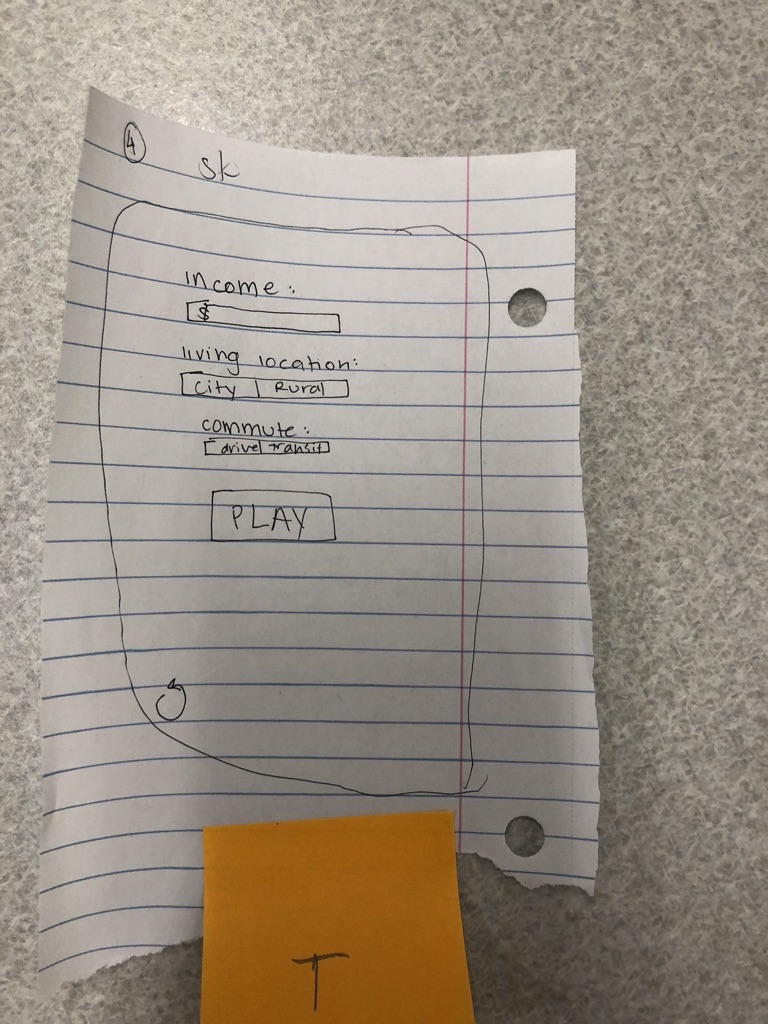 4 sk
income:
$
living location:
City | Rural
commute:
drive| transit
PLAY
T